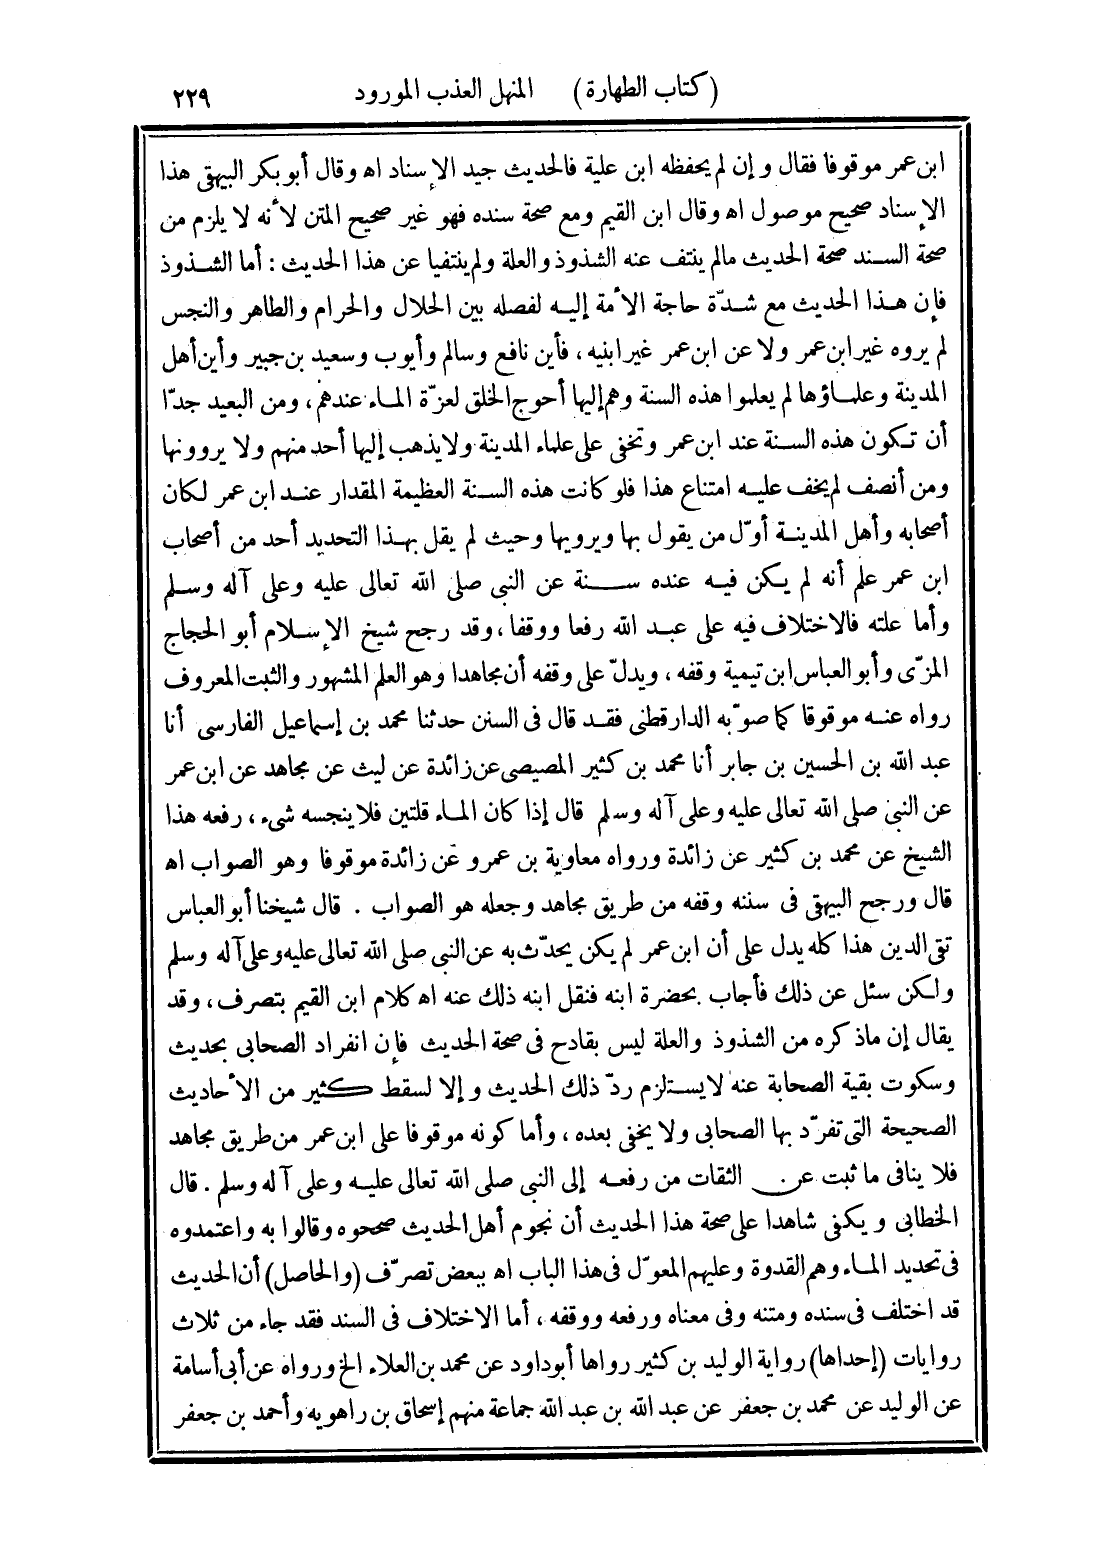 (كتاب الطهارة) المنهل العذب المورود ٢٢٩
ابن عمر موقوفا فقال وإن لم يحفظه ابن علية فالحديث جيد الإسناد اه وقال أبو بكر البيهقى هذا
الإسناد صحيح موصول اه وقال ابن القيم ومع صحة سنده فهو غير صحيح المتن لأنه لا يلزم من
صحة السند صحة الحديث مالم ينتف عنه الشذوذ والعلة ولم ينتفيا عن هذا الحديث : أما الشذوذ
فإن هذا الحديث مع شدّة حاجة الأمة إليه لفصله بين الحلال والحرام والطاهر والنجس
لم يروه غير ابن عمر ولا عن ابن عمر غير ابنيه ، فأين نافع وسالم وأيوب وسعيد بن جبير وأين أهل
المدينة وعلماؤها لم يعلموا هذه السنة وهم إليها أحوج الخلق لعزّة الماء عندهم ، ومن البعيد جدّا
أن تكون هذه السنة عند ابن عمر وتخفى على علماء المدينة ولا يذهب إليها أحد منهم ولا يروونها
ومن أنصف لم يخف عليه امتناع هذا فلو كانت هذه السنة العظيمة المقدار عند ابن عمر لكان
أصحابه وأهل المدينة أوّل من يقول بها ويرويها وحيث لم يقل بهذا التحديد أحد من أصحاب
ابن عمر علم أنه لم يكن فيه عنده سنة عن النبي صلى الله تعالى عليه وعلى آله وسلم
وأما علته فالاختلاف فيه على عبد الله رفعا ووقفا ، وقد رجح شيخ الإسلام أبو الحجاج
المزّى وأبو العباس ابن تيمية وقفه ، ويدلّ على وقفه أن مجاهدا وهو العلم المشهور والثبت المعروف
رواه عنه موقوفا كما صوّبه الدارقطنى فقد قال فى السنن حدثنا محمد بن إسماعيل الفارسى أنا
عبد الله بن الحسين بن جابر أنا محمد بن كثير المصيصى عن زائدة عن ليث عن مجاهد عن ابن عمر
عن النبى صلى الله تعالى عليه وعلى آله وسلم قال إذا كان الماء قلتين فلا ينجسه شىء ، رفعه هذا
الشيخ عن محمد بن كثير عن زائدة ورواه معاوية بن عمرو عن زائدة موقوفا وهو الصواب اه
قال ورجح البيهقى فى سننه وقفه من طريق مجاهد وجعله هو الصواب . قال شيخنا أبو العباس
تقى الدين هذا كله يدل على أن ابن عمر لم يكن يحدّث به عن النبى صلى الله تعالى عليه وعلى آله وسلم
ولكن سئل عن ذلك فأجاب بحضرة ابنه فنقل ابنه ذلك عنه اه كلام ابن القيم بتصرف ، وقد
يقال إن ماذكره من الشذوذ والعلة ليس بقادح فى صحة الحديث فإن انفراد الصحابى بحديث
وسكوت بقية الصحابة عنه لا يستلزم ردّ ذلك الحديث وإلا لسقط كثير من الأحاديث
الصحيحة التى تفرّد بها الصحابى ولا يخفى بعده ، وأما كونه موقوفا على ابن عمر من طريق مجاهد
فلا ينافى ما ثبت عن الثقات من رفعه إلى النبى صلى الله تعالى عليه وعلى آله وسلم . قال
الخطابى ويكفى شاهدا على صحة هذا الحديث أن نجوم أهل الحديث صححوه وقالوا به واعتمدوه
فى تحديد الماء وهم القدوة وعليهم المعوّل فى هذا الباب اه ببعض تصرّف (والحاصل) أن الحديث
قد اختلف فى سنده ومتنه وفى معناه ورفعه ووقفه ، أما الاختلاف فى السند فقد جاء من ثلاث
روايات (إحداها) رواية الوليد بن كثير رواها أبوداود عن محمد بن العلاء الخ ورواه عن أبى أسامة
عن الوليد عن محمد بن جعفر عن عبد الله بن عبد الله جماعة منهم إسحاق بن راهويه وأحمد بن جعفر